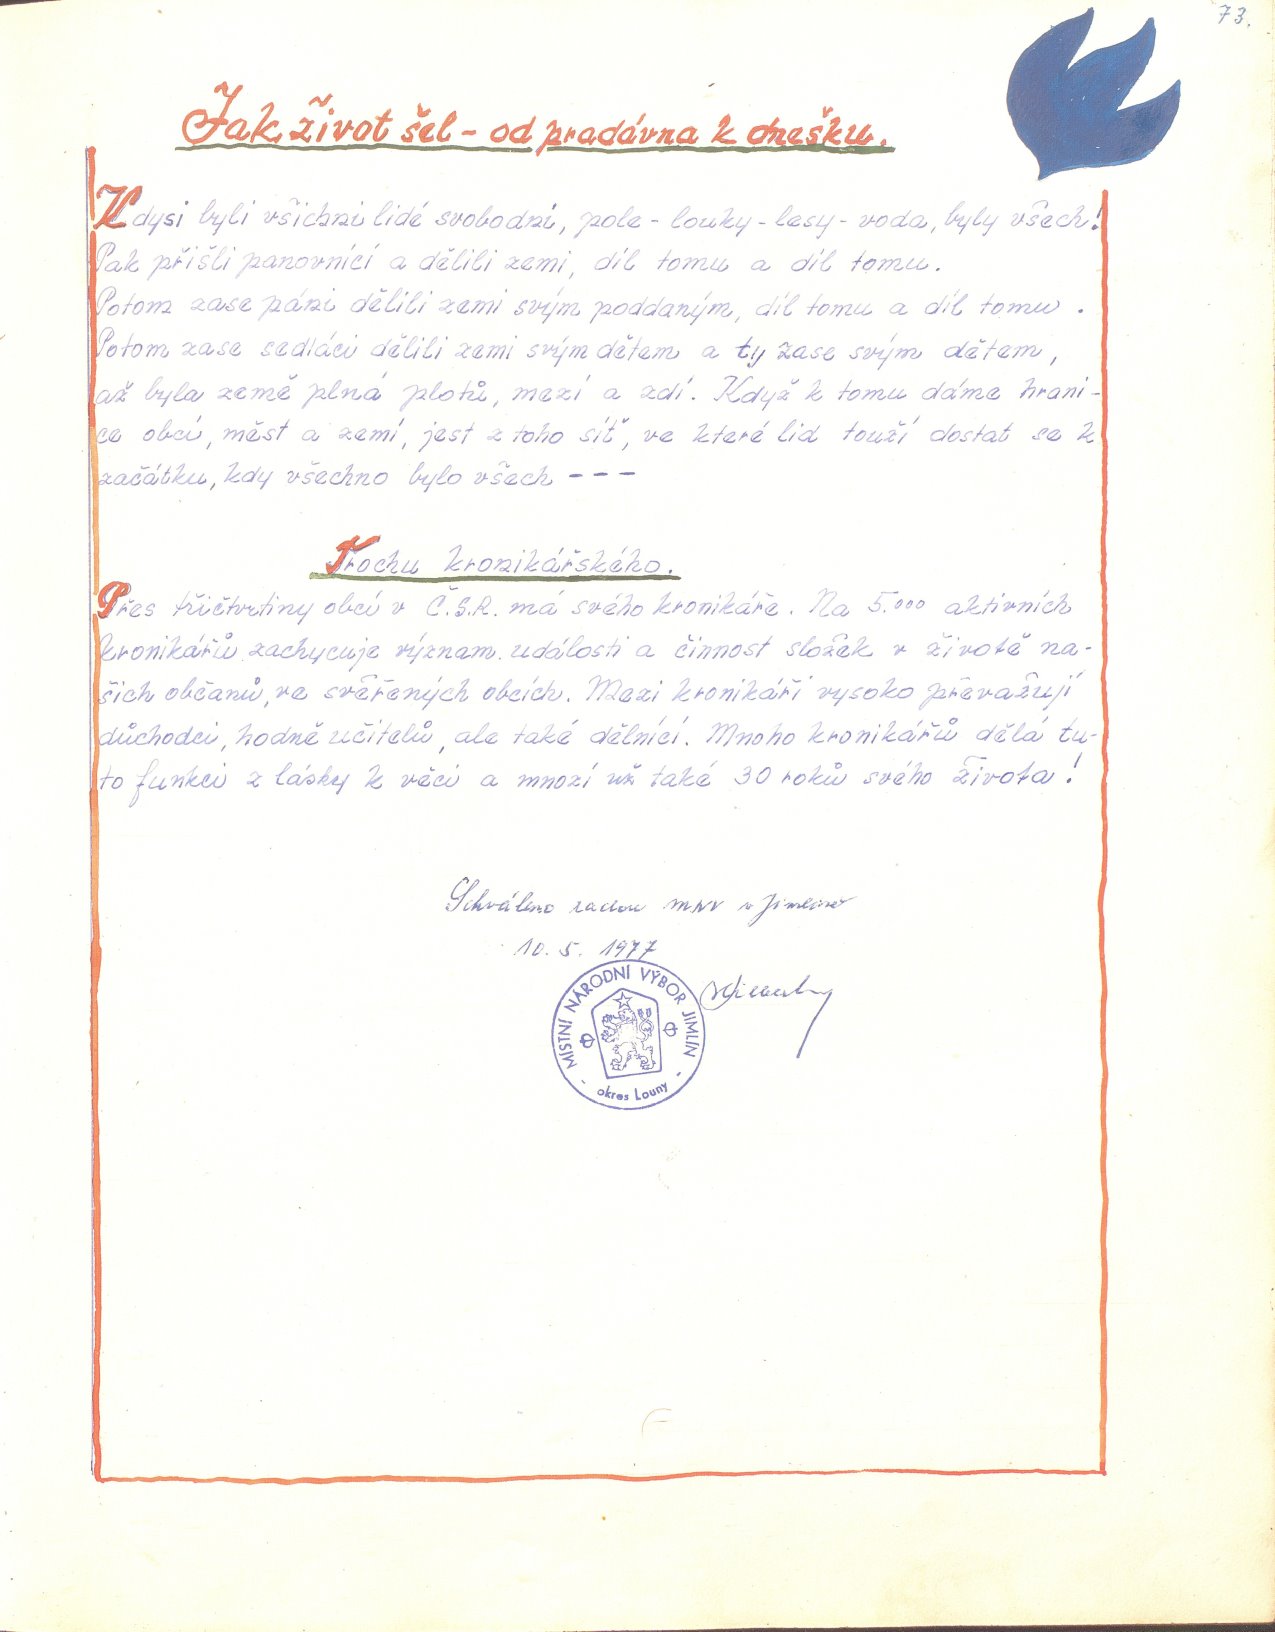 73.
Jak život šel - od pradávna k dnešku.
Kdysi byli všichni lidé svobodní, pole - louky - lesy - voda, byly všech!
Pak přišli panovníci a dělili zemi, díl tomu a díl tomu.
Potom zase páni dělili zemi svým poddaným, díl tomu a díl tomu.
Potom zase sedláci dělili zemi svým dětem a ty zase svým dětem,
až byla země plná plotů, mezí a zdí. Když k tomu dáme hrani-
ce obcí, měst a zemí, jest z toho síť, ve které lid touží dostat se k
začátku, kdy všechno bylo všech ---
Trochu kronikářského.
Přes tříčtvrtiny obcí v Č.S.R. má svého kronikáře. Na 5.000 aktivních
kronikářů zachycuje význam. události a činnost složek v životě na-
šich občanů, ve svěřených obcích. Mezi kronikáři vysoko převažují
důchodci, hodně učitelů, ale také dělníci. Mnoho kronikářů dělá tu-
to funkci z lásky k věci a mnozí už také 30 roků svého života!
Schváleno radou MNV v Jimlíně
10. 5. 1977
MÍSTNÍ NÁRODNÍ VÝBOR JIMLÍN
okres Louny